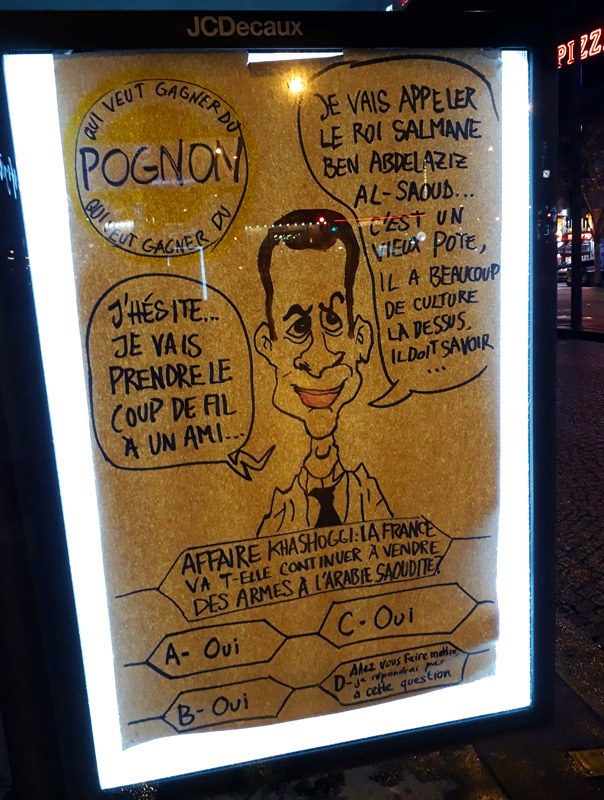 JCDecaux
PIZZ
QUI VEUT GAGNER DU
POGNON
QUI VEUT GAGNER DU
JE VAIS APPELER
LE ROI SALMANE
BEN ABDELAZIZ
AL-SAOUD...
C'EST UN
VIEUX POTE,
IL A BEAUCOUP
DE CULTURE
LA DESSUS.
IL DOIT SAVOIR
...
J'HÉSITE...
JE VAIS
PRENDRE LE
COUP DE FIL
À UN AMI...
AFFAIRE KHASHOGGI: LA FRANCE
VA T-ELLE CONTINUER À VENDRE
DES ARMES À L'ARABIE SAOUDITE?
A- Oui
C- Oui
B- Oui
Allez vous faire mettre
D- je répondrai pas
à cette question